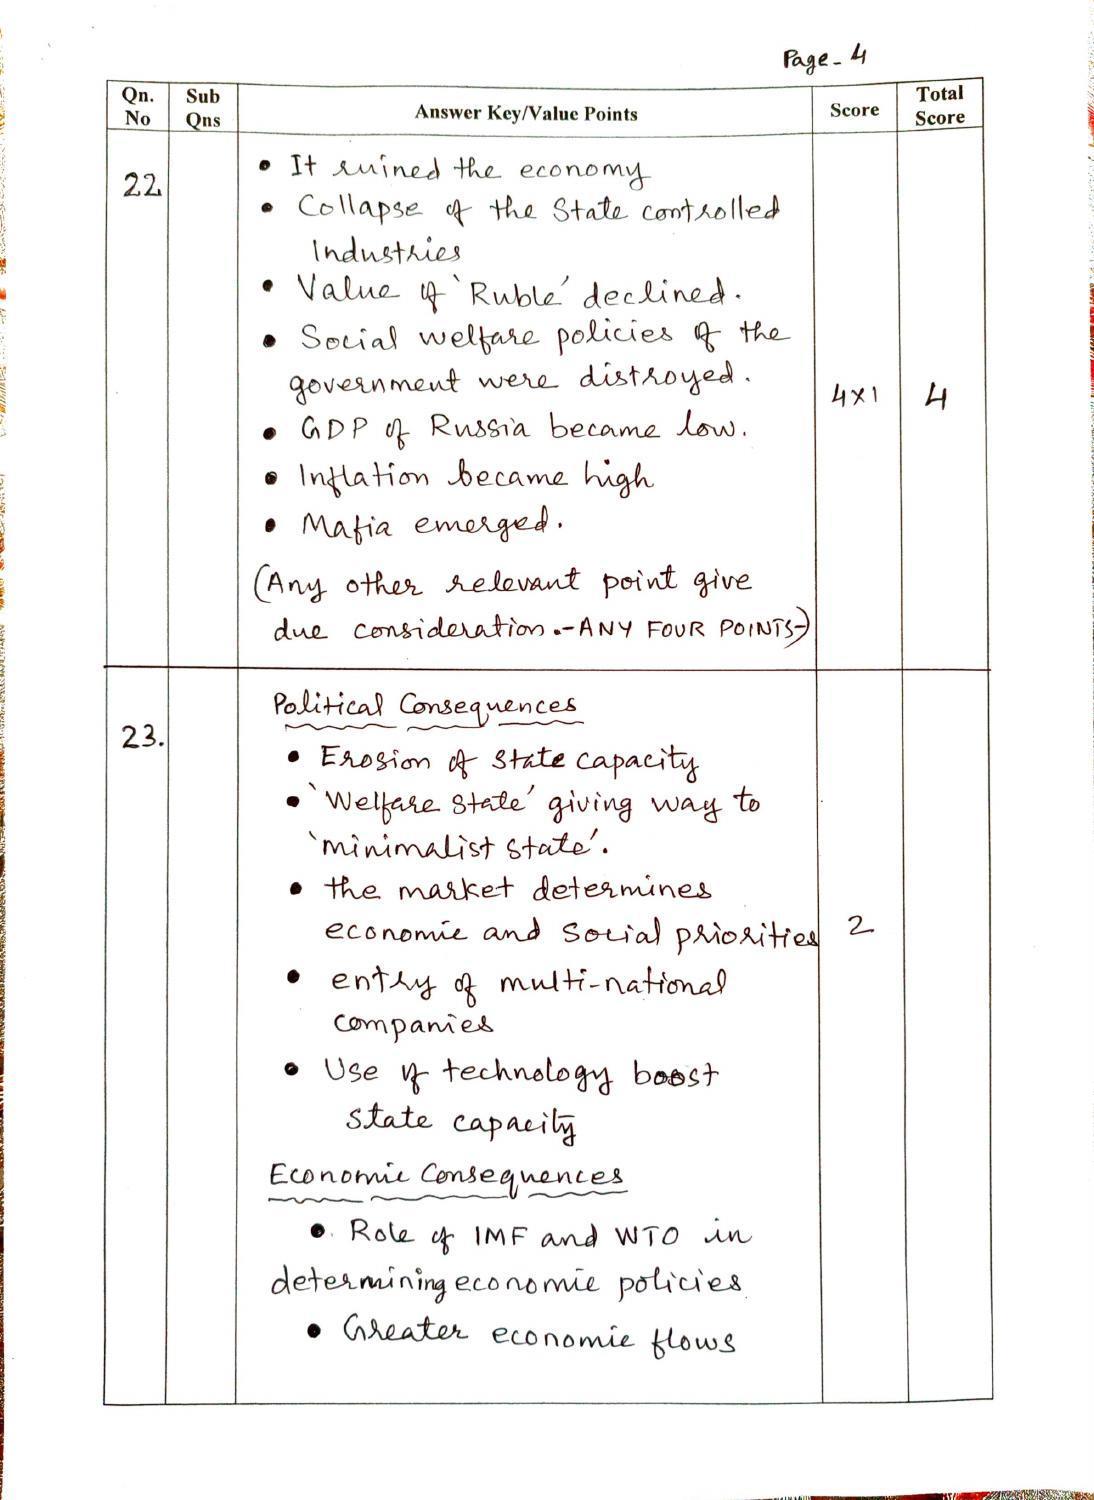 Page - 4
Qn. No
Sub Qns
Answer Key/Value Points
Score
Total Score
22
• It ruined the economy
• Collapse of the State controlled
Industries
• Value of 'Ruble' declined.
• Social welfare policies of the
government were distroyed.
• GDP of Russia became low.
• Inflation became high
• Mafia emerged.
(Any other relevant point give
due consideration.-ANY FOUR POINTS-)
4x1
4
23.
Political Consequences
• Erosion of state capacity
• 'Welfare state' giving way to
'minimalist state'.
• the market determines
economic and social priorities
• entry of multi-national
companies
• Use of technology boost
state capacity
2
Economic Consequences
• Role of IMF and WTO in
determining economic policies
• Greater economic flows